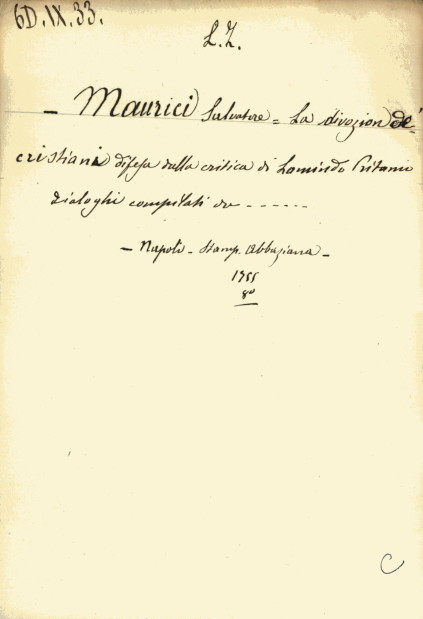 6D.IX.33.
L.Z.
- Maurici Salvatore = La divozion de'
cristiani difesa dalla critica di Lamindo Pritanio
Dialoghi compilati da ------
- Napoli - Stamp. Abbaziana -
1755
8º
C